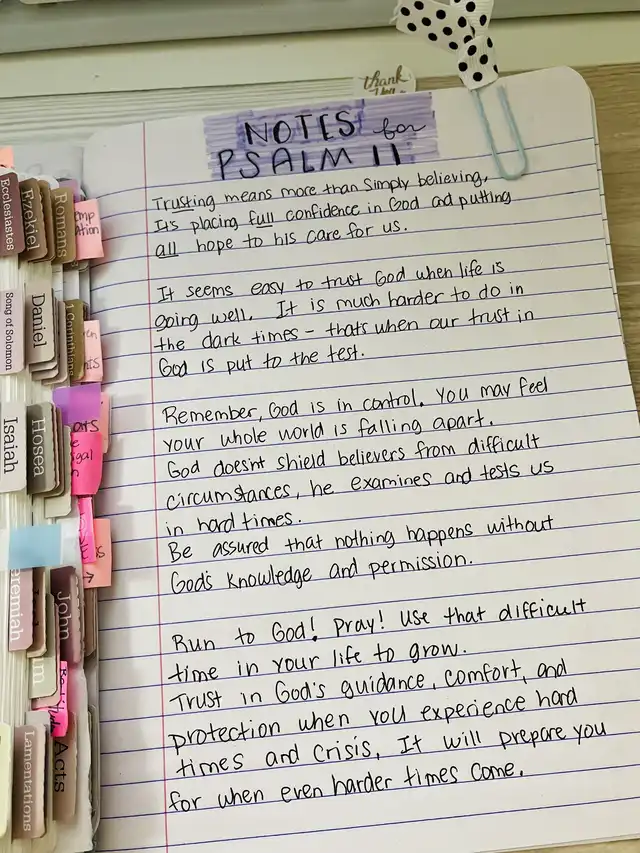 thank
you
NOTES for
PSALM 11
Trusting means more than simply believing,
It's placing full confidence in God and putting
all hope to his care for us.
It seems easy to trust God when life is
going well. It is much harder to do in
the dark times - thats when our trust in
God is put to the test.
Remember, God is in control. You may feel
your whole world is falling apart.
God doesnt shield believers from difficult
circumstances, he examines and tests us
in hard times.
Be assured that nothing happens without
God's knowledge and permission.
Run to God! Pray! Use that difficult
time in your life to grow.
Trust in God's guidance, comfort, and
protection when you experience hard
times and crisis. It will prepare you
for when even harder times come.
Ecclesiastes
Ezekiel
Romans
Song of Solomon
Daniel
Isaiah
Hosea
John
Acts
Lamentations